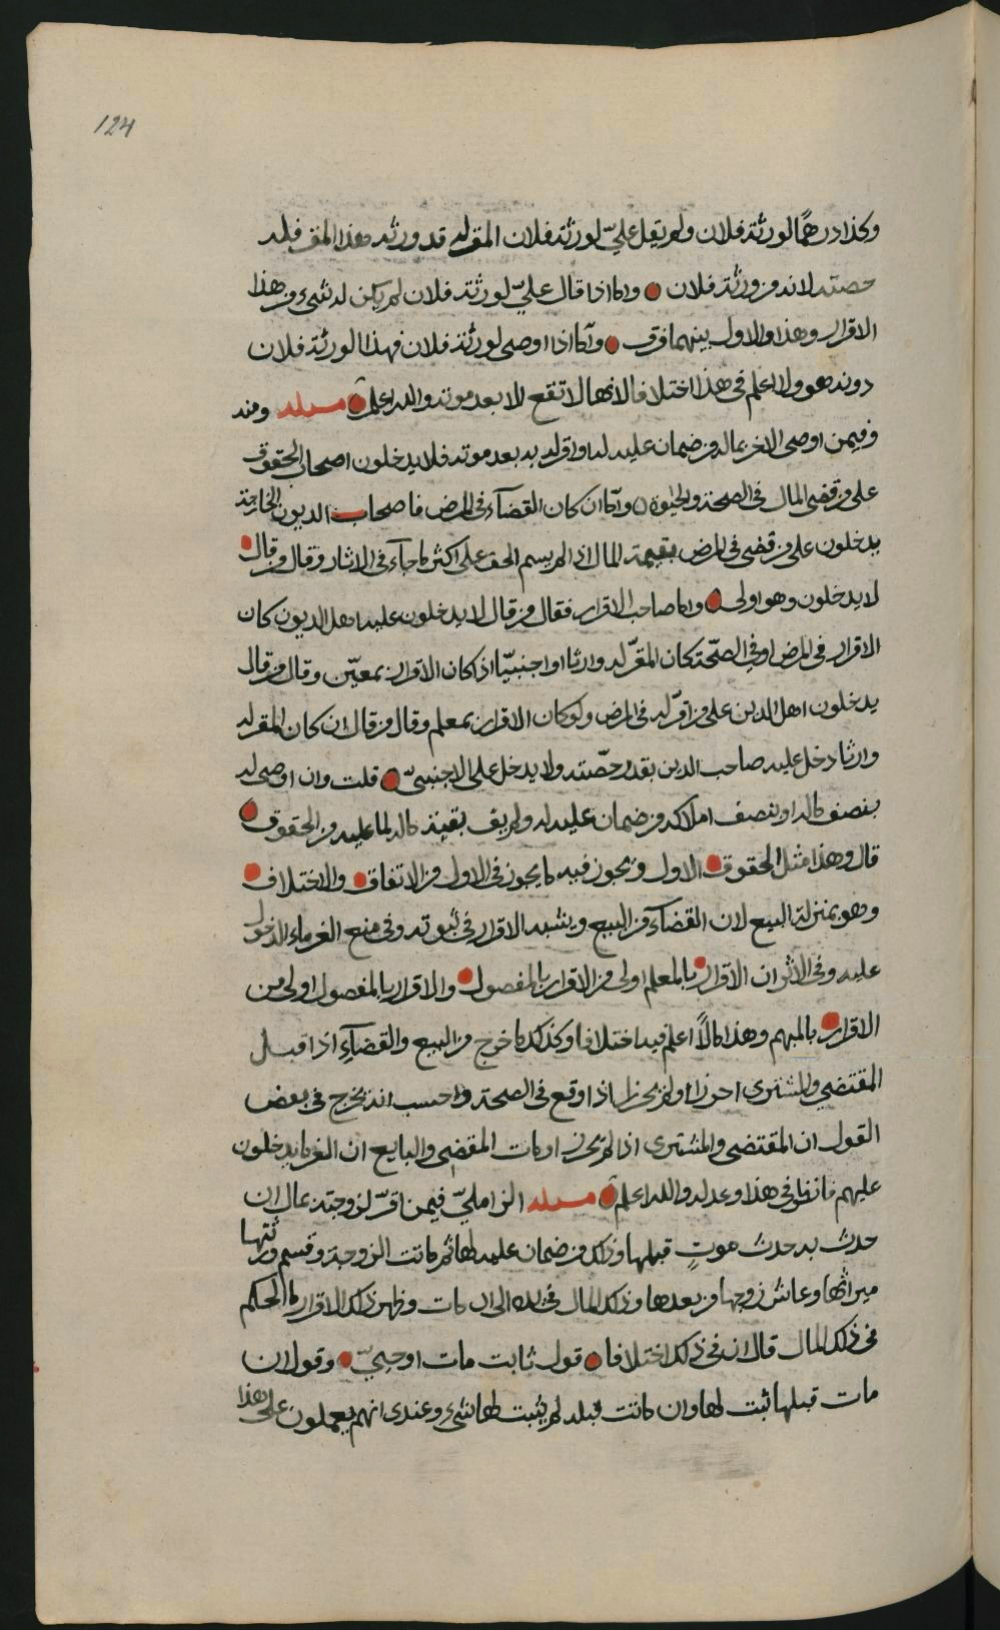 124
وكذا درهمًا لورثة فلان ولم يقل عليّ لورثة فلان المقر له قد ورثه هذا المقر فله
حصته لانه من ورثة فلان واما اذا قال عليّ لورثة فلان لم يكن له شيء من هذا
الاقرار وهذا والاول بينهما فرق وأما اذا اوصى لورثة فلان فهذا لورثة فلان
دونه هو ولا اعلم في هذا اختلافا لانها لا تقع الا بعد موته والله اعلم مسئله ومنه
وفيمن اوصى لاخر بماله من ضمان عليه له او اقر له به بعد موته فلا يدخلون اصحاب الحقوق
على من قضي المال في الصحة والحيوة وأما ان كان القضآء في المرض فاصحاب الديون الخارجة
يدخلون على من قضي في المرض بقيمة المال اذا لم يسم الحق على اكثر ما جآء في الاثار وقال من قال
لا يدخلون وهو اولى واما صاحب الاقرار فقال من قال لا يدخلون عليه اهل الديون كان
الاقرار في المرض او في الصّحة كان المقرّ له وارثا او اجنبيّا اذا كان الاقرار بمعيّن وقال من قال
يدخلون اهل الدين على من اقرّ له في المرض ولو كان الاقرار بمعلم وقال من قال ان كان المقر له
وارثا دخل عليه صاحب الدين بقدر حصّته ولا يدخل على الاجنبيّ قلت وان اوصى له
بنصف ماله او بنصف املاكه من ضمان عليه له ولم يف بقية ماله لما عليه من الحقوق
قال وهذا مثل الحقوق الاول ويجوز فيه ما يجوز في الاول من الاتفاق والاختلاف
وهو بمنزلة البيع لان القضآء من البيع ويشبه الاقرار في ثبوته وفي منع الغرماء الدخول
عليه وفي الاثر ان الاقرار بالمعلم اولى من الاقرار بالمفصول والاقرار بالمفصول اولى من
الاقرار بالمبهم وهذا مالاً اعلم فيه اختلافا وكذلك ما خرج من البيع والقضآء اذا قبل
المقتضي والمشتري احرزا او لم يحرزا اذا وقع في الصحة واحسب انه يخرج في بعض
القول ان المقتضي والمشتري اذا لم يحرز او مات المقضي والبايع ان الغرما يدخلون
عليهم فانظر في هذا وعدله والله اعلم مسئله الزامليّ فيمن اقرّ لزوجته بمال ان
حدث به حدث موتٍ قبلها وذلك من ضمان عليه لها ثم ماتت الزوجة وقسم ورثتها
ميراثها وعاش زوجها من بعدها وذلك المال في يده الى ان مات وظهر ذلك الاقرار ما الحكم
في ذلك المال قال انه في ذلك اختلافا قول ثابت مات او حييّ وقول ان
مات قبلها ثبت لها وان ماتت قبله لم يثبت لها شيء وعندي انهم يعملون على هذا